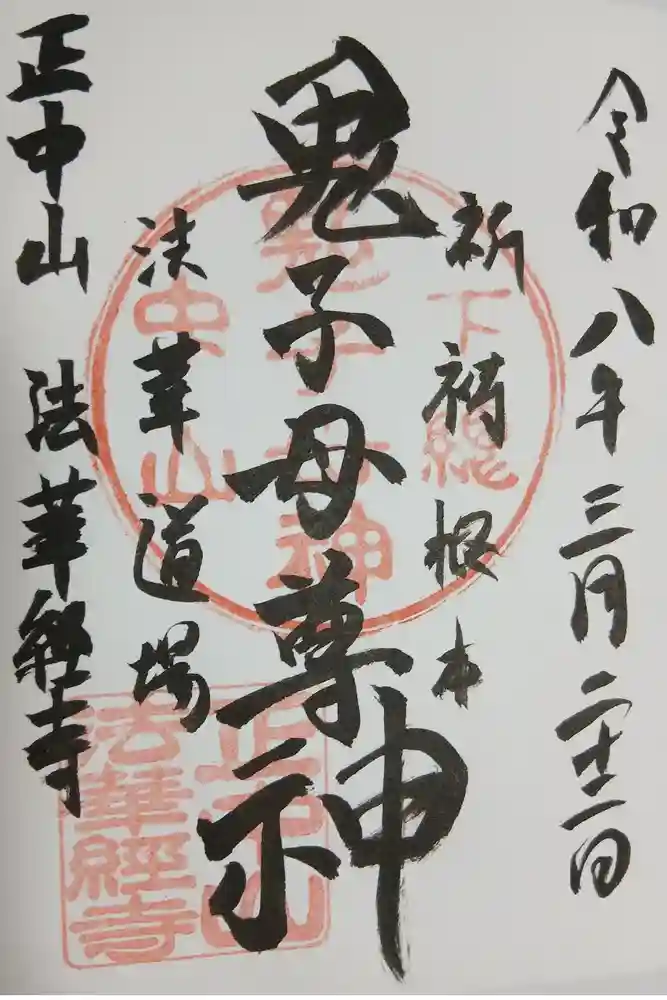 令和八年三月二十二日
祈祷根本
鬼子母尊神
法華道場
正中山 法華経寺
下總
鬼子母神
中山
正中山
法華經寺